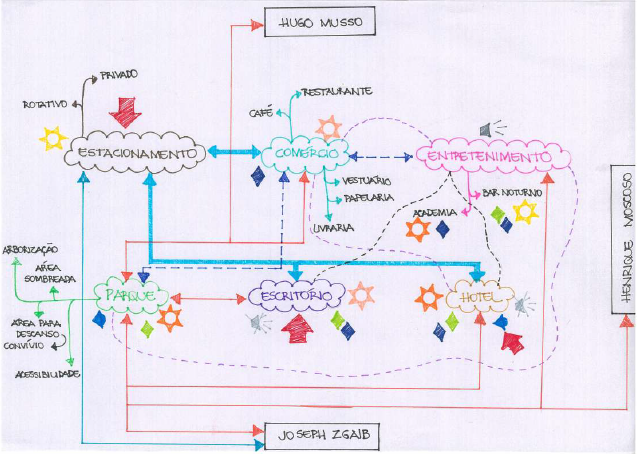 HUGO MUSSO
PRIVADO
ROTATIVO
RESTAURANTE
CAFÉ
ESTACIONAMENTO
COMÉRCIO
ENTRETENIMENTO
VESTUÁRIO
PAPELARIA
LIVRARIA
BAR NOTURNO
ACADEMIA
HENRIQUE MOSCOSO
ARBORIZAÇÃO
ÁREA
SOMBREADA
PARQUE
ESCRITÓRIO
HOTEL
ÁREA PARA
DESCANSO
CONVÍVIO
ACESSIBILIDADE
JOSEPH ZGAIB